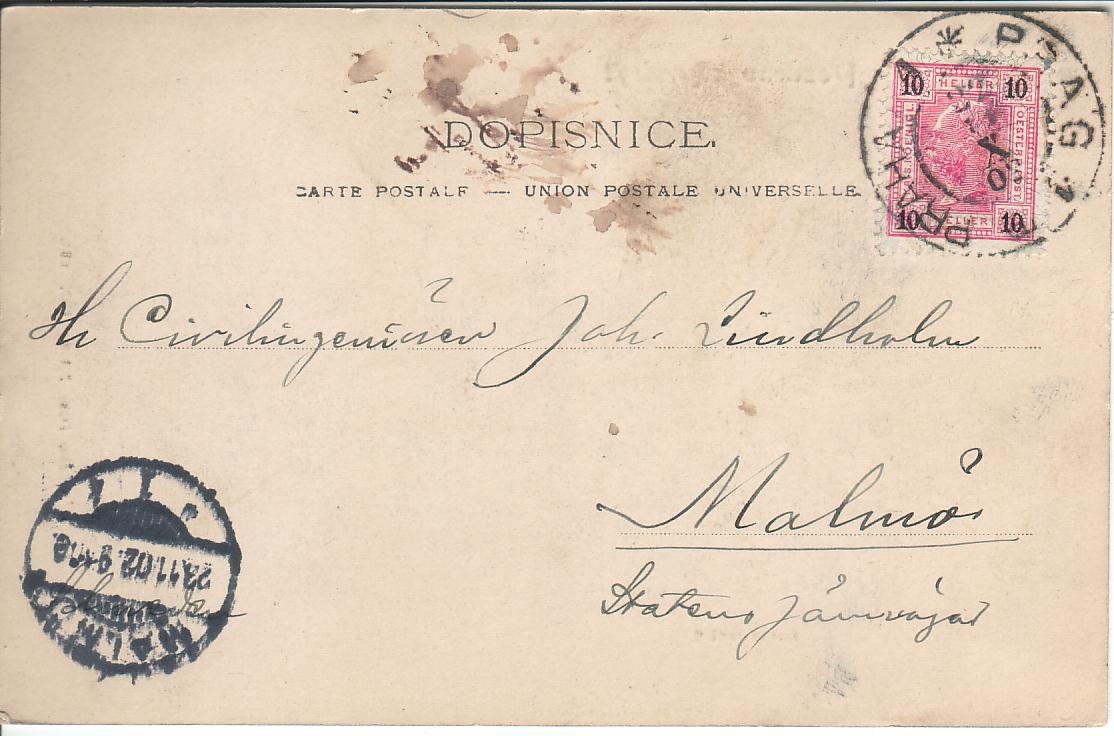 DOPISNICE.
CARTE POSTALE — UNION POSTALE UNIVERSELLE.
10 HELLER 10
10 HELLER 10
PRAG 1
PRAHA
Hr Civilingeniören Joh. Lindholm
Malmö
Statens Järnvägar
MALMÖ
23.11.02.